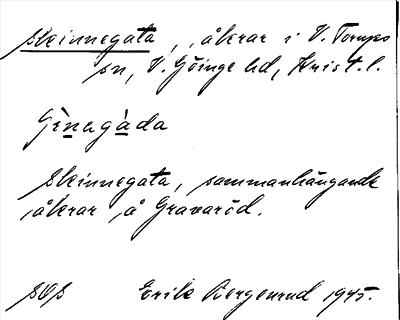 Skinnegata, åkrar i V. Torups
sn, V. Göinge hd, Krist. l.
Skinnegata, sammanhängande
åkrar å Gravaröd.
Erik Bergenrud 1945.